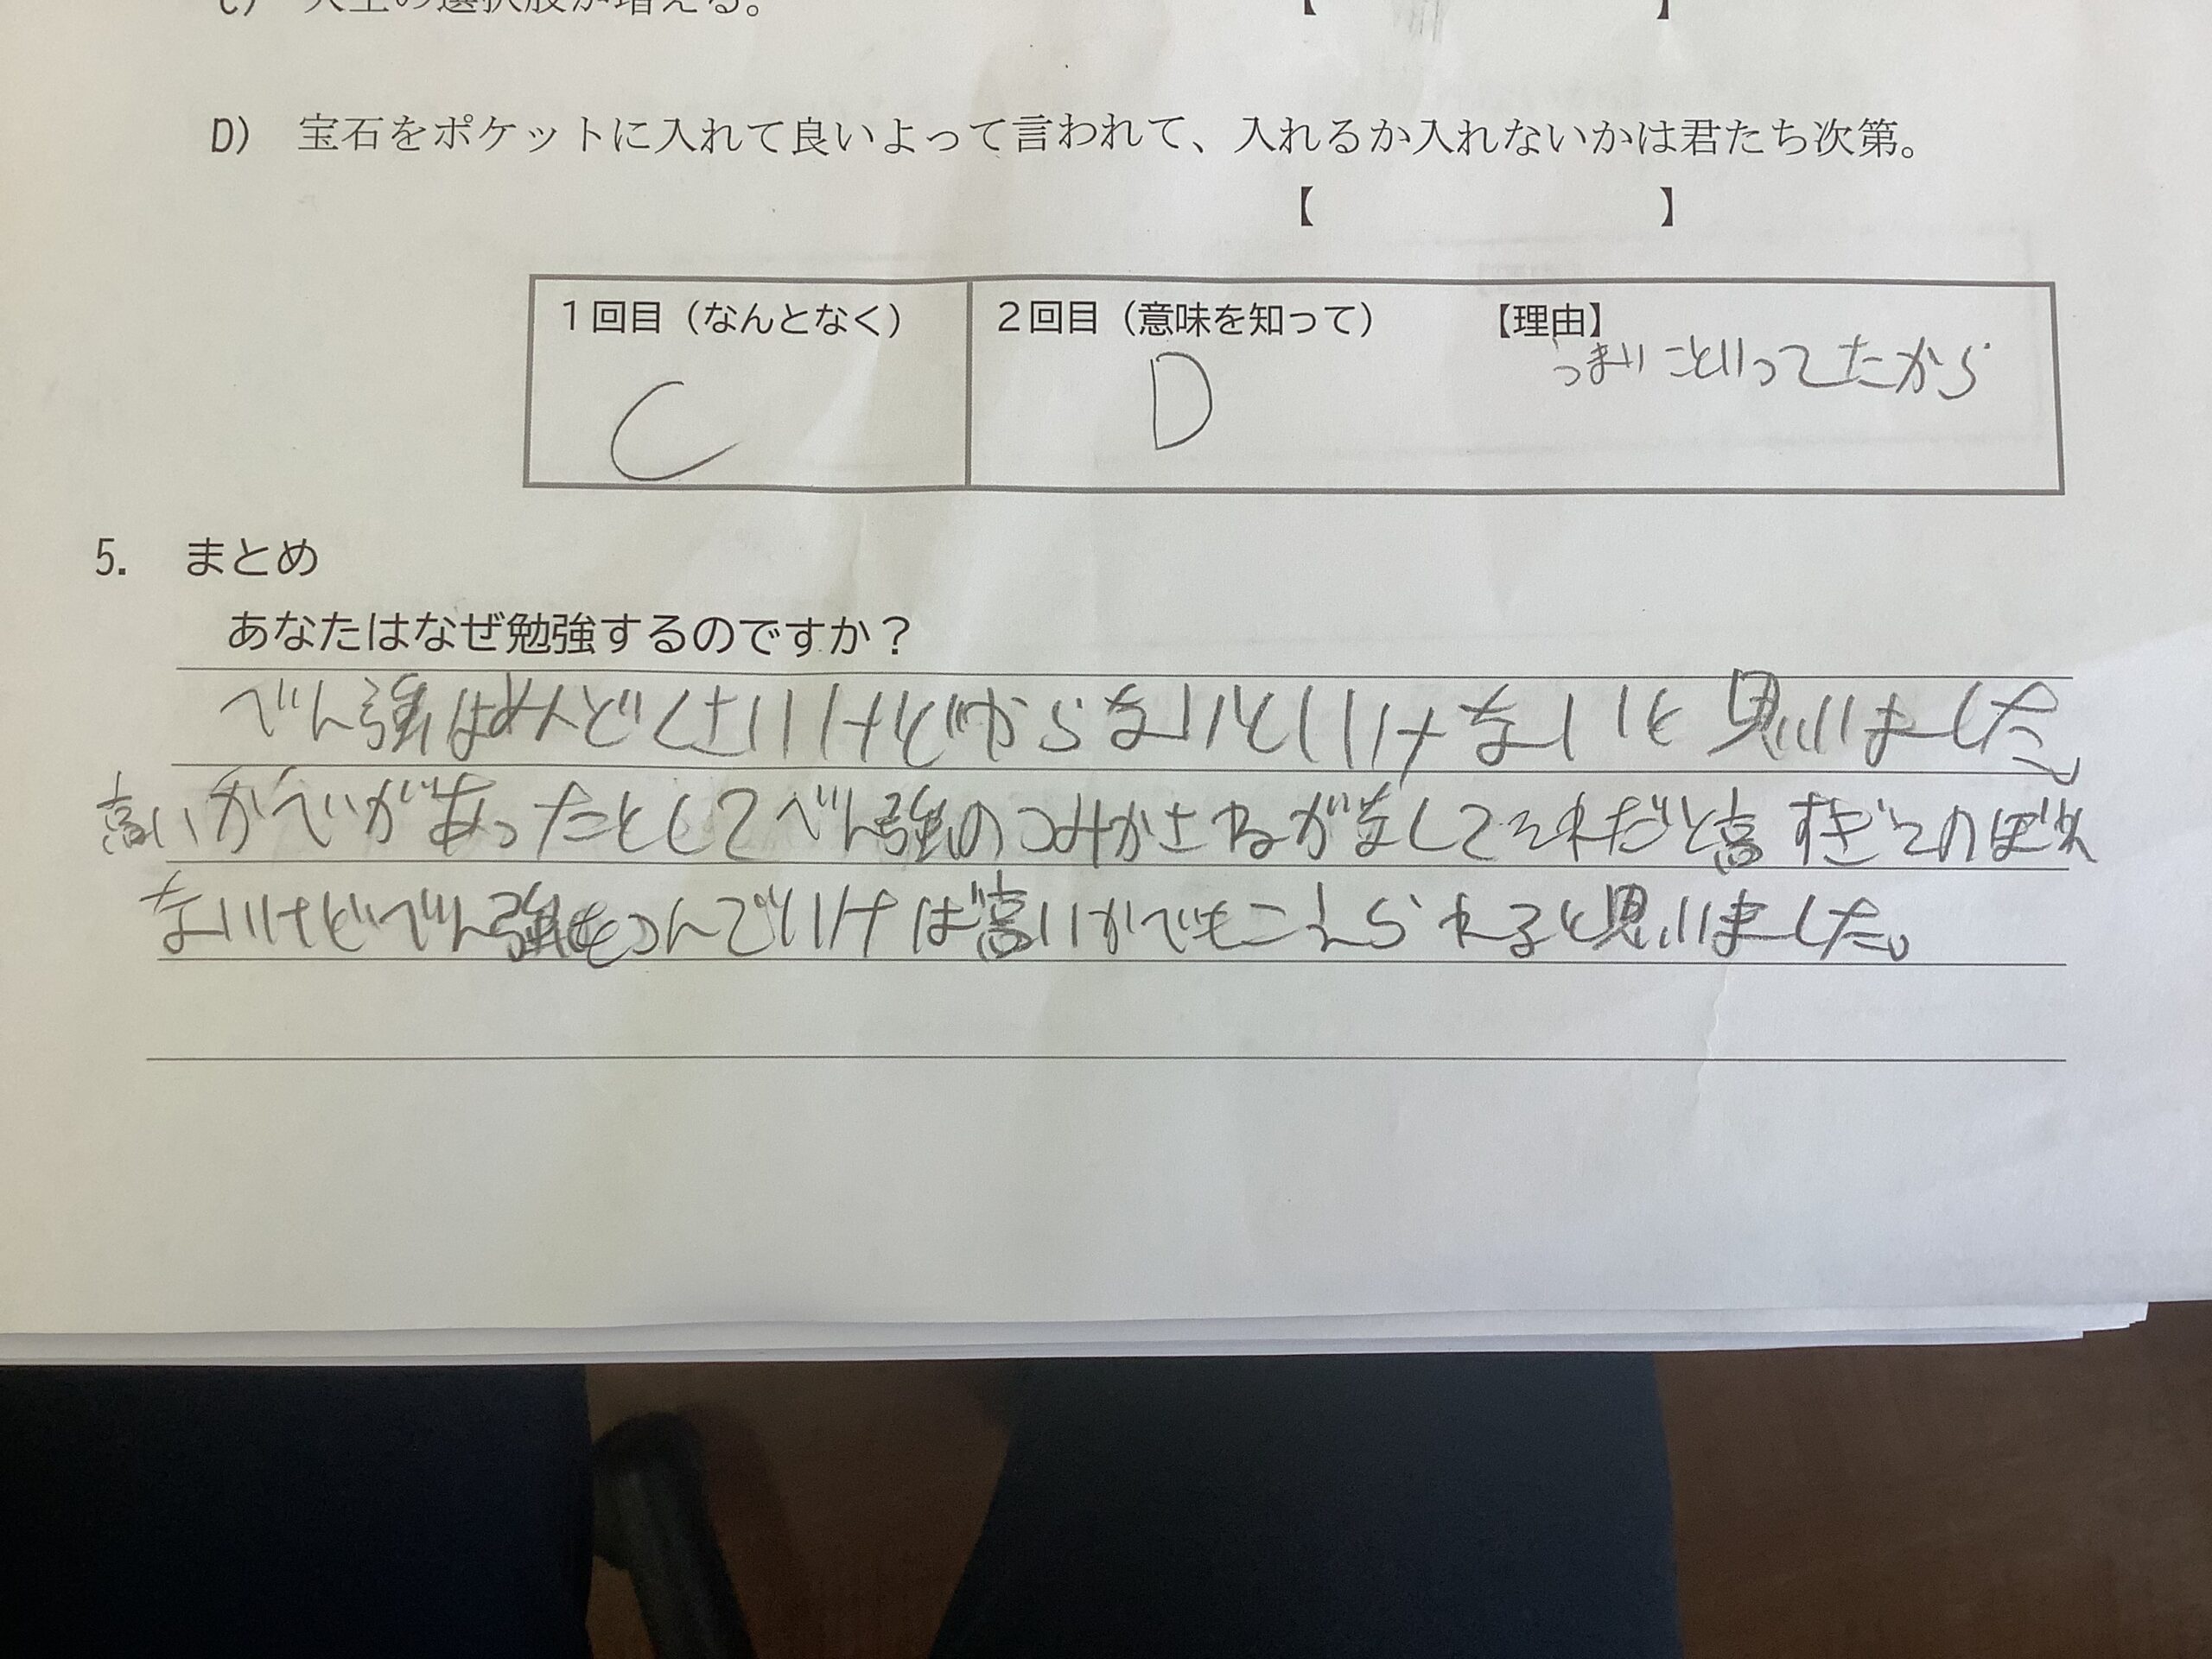 C) 人生の選択肢が増える。
【 】
D) 宝石をポケットに入れて良いよって言われて、入れるか入れないかは君たち次第。
【 】
1回目（なんとなく）
C
2回目（意味を知って）
D
【理由】
つまりこといってたから
5. まとめ
あなたはなぜ勉強するのですか？
べん強はめんどくさいけどやらないといけないと思いました。
高いかべがあったとしてべん強のつみかさねがなくてそれだと高すぎてのぼれ
ないけどべん強をつんでいけば高いかべもこえられると思いました。